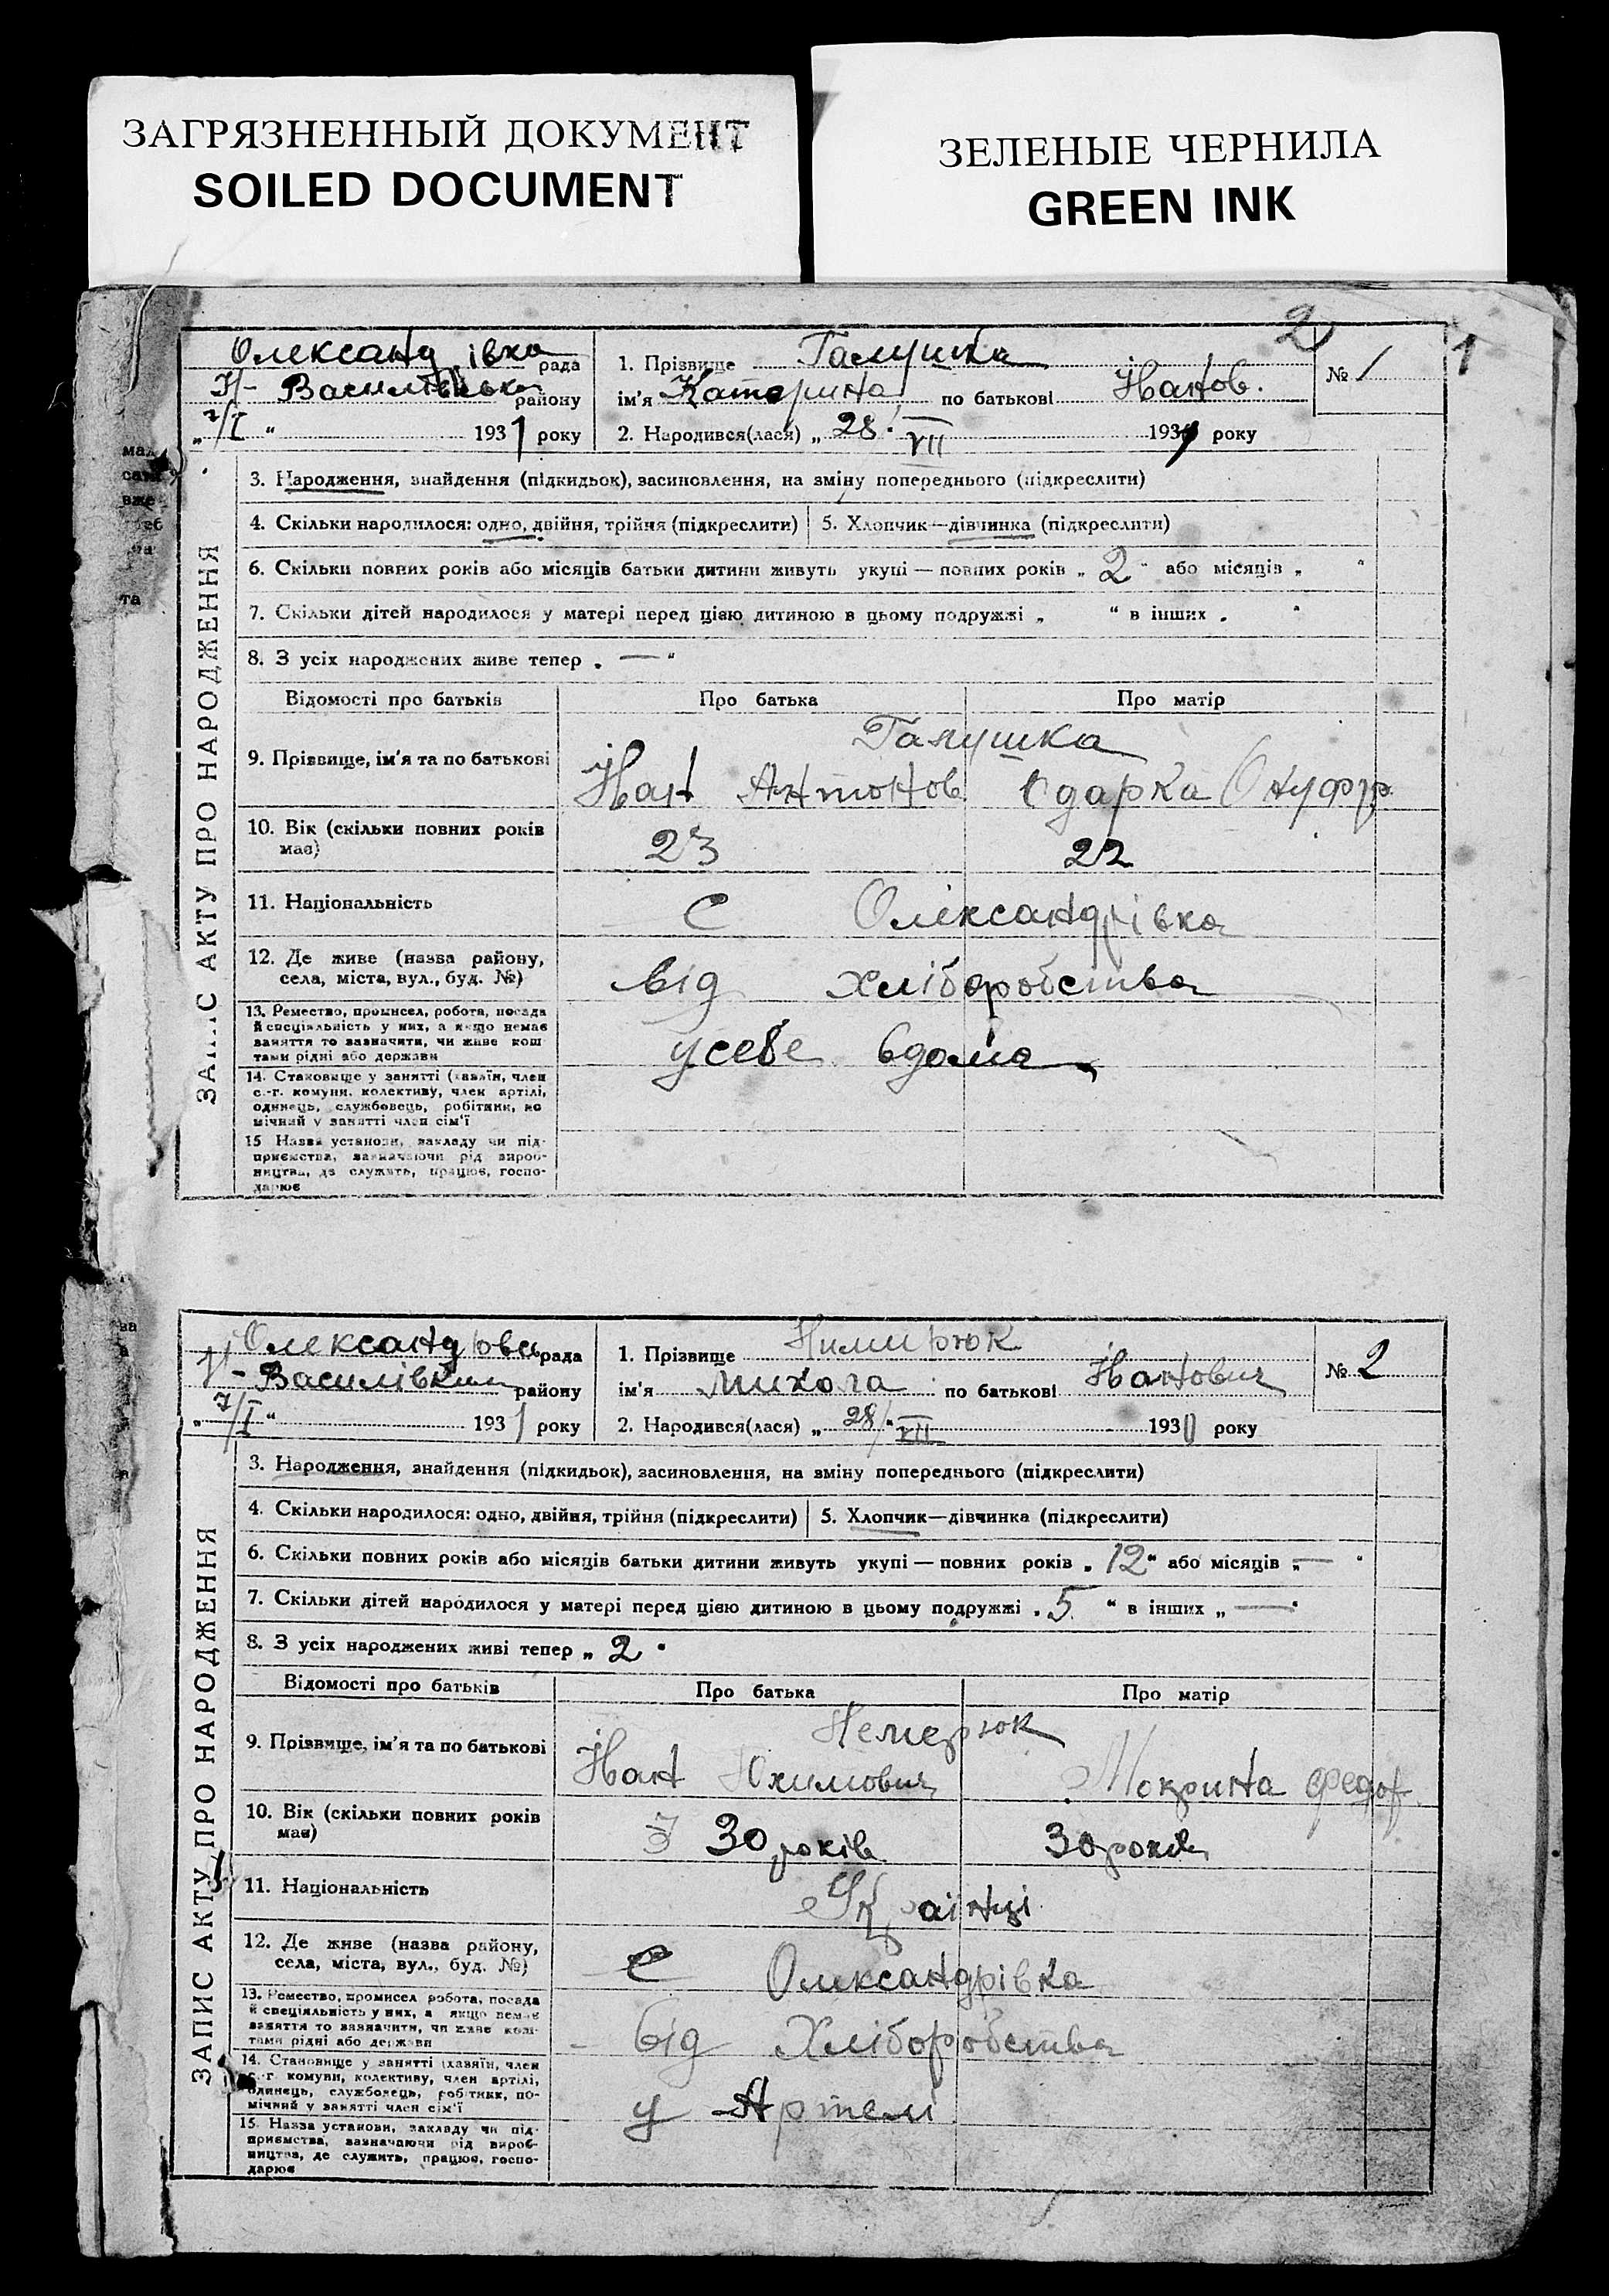 ЗАГРЯЗНЕННЫЙ ДОКУМЕНТ
SOILED DOCUMENT
ЗЕЛЕНЫЕ ЧЕРНИЛА
GREEN INK
2
1
Олександ івка рада
Н- Василівськ району
„ 7/I “ 1931 року
1. Прізвище Галушка
ім'я Катерина по батькові Іванов.
2. Народився(лася) „ 28. VII 193 року
№ 1
ЗАПИС АКТУ ПРО НАРОДЖЕННЯ
3. Народження, знайдення (підкидьок), засиновлення, на зміну попереднього (підкреслити)
4. Скільки народилося: одно, двійня, трійня (підкреслити) 5. Хлопчик—дівчинка (підкреслити)
6. Скільки повних років або місяців батьки дитини живуть укупі — повних років „ 2 “ або місяців „ “
7. Скільки дітей народилося у матері перед цією дитиною в цьому подружжі „ “ в інших „ “
8. З усіх народжених живе тепер „ — “
Відомості про батьків Про батька Про матір
9. Прізвище, ім'я та по батькові
Галушка
Іван Антонов. Одарка Онуфр.
10. Вік (скільки повних років має) 23 22
11. Національність С Олександрівка
12. Де живе (назва району, села, міста, вул., буд. №) від хліборобства
13. Ремество, промисел, робота, посада й спеціяльність у них, а якщо немає заняття то зазначити, чи живе коштами рідні або держави
у себе вдома
14. Становище у занятті (хазяїн, член с.-г. комуни, колективу, член артілі, одинець, службовець, робітник, помічний у занятті член сім'ї
15 Назва установи, закладу чи підприємства, зазначаючи рід виробництва, де служить, працює, господарює
Олександ івськ рада
Н- Василівськ району
„ 7/I “ 1931 року
1. Прізвище Нимирюк
ім'я Микола по батькові Іванович
2. Народився(лася) „ 28/ “ XII 1930 року
№ 2
ЗАПИС АКТУ ПРО НАРОДЖЕННЯ
3. Народження, знайдення (підкидьок), засиновлення, на зміну попереднього (підкреслити)
4. Скільки народилося: одно, двійня, трійня (підкреслити) 5. Хлопчик—дівчинка (підкреслити)
6. Скільки повних років або місяців батьки дитини живуть укупі — повних років „ 12 “ або місяців „ — “
7. Скільки дітей народилося у матері перед цією дитиною в цьому подружжі „ 5 “ в інших „ — “
8. З усіх народжених живі тепер „ 2 “
Відомості про батьків Про батька Про матір
9. Прізвище, ім'я та по батькові
Немерюк
Іван Юхимович Мокрина Федор.
10. Вік (скільки повних років має) 30 років 30 років
11. Національність Українці
12. Де живе (назва району, села, міста, вул., буд. №) С Олександрівка
13. Ремество, промисел, робота, посада й спеціяльність у них, а якщо немає заняття то зазначити, чи живе коштами рідні або держави
від Хліборобства
14. Становище у занятті (хазяїн, член с.-г комуни, колективу, член артілі, одинець, службовець, робітник, помічний у занятті член сім'ї
у Артелі
15. Назва установи, закладу чи підприємства, зазначаючи рід виробництва, де служить, працює, господарює